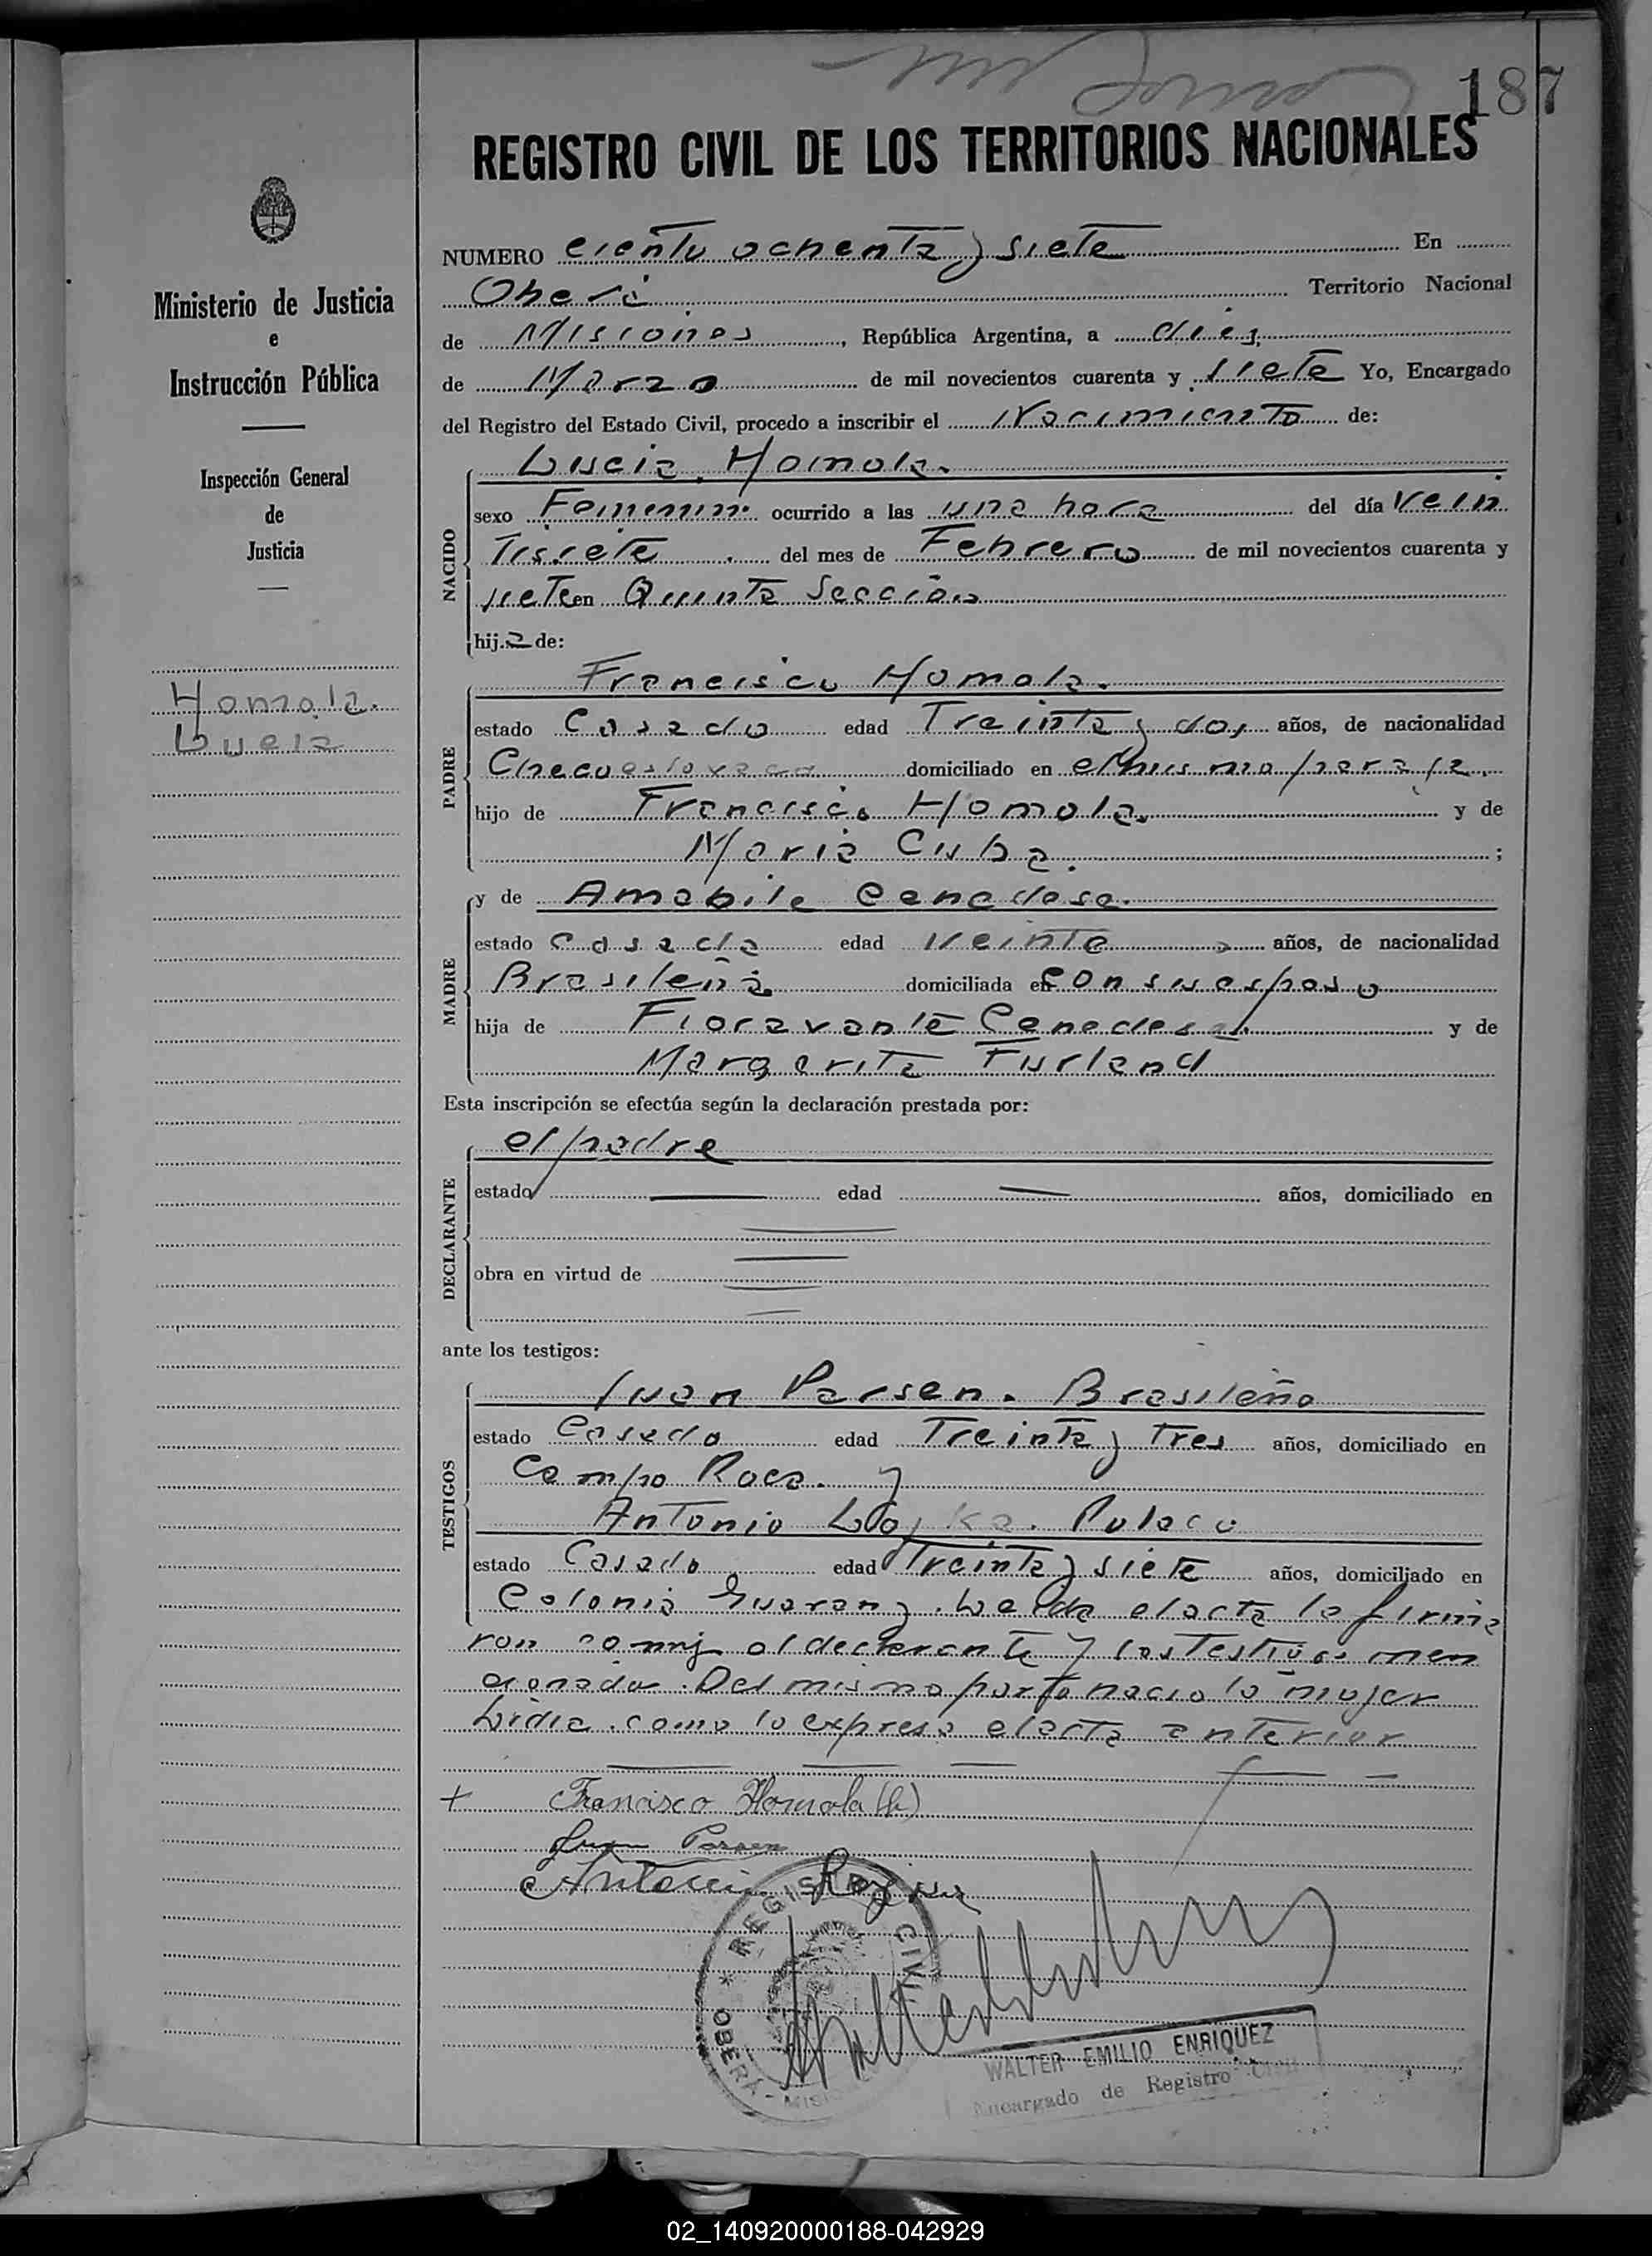 187
REGISTRO CIVIL DE LOS TERRITORIOS NACIONALES
Ministerio de Justicia
e
Instrucción Pública
Inspección General
de
Justicia
Homola.
Lucia
NUMERO ciento ochenta y siete En
Oberá Territorio Nacional
de Misiones, República Argentina, a diez
de Marzo de mil novecientos cuarenta y siete Yo, Encargado
del Registro del Estado Civil, procedo a inscribir el Nacimiento de:
NACIDO
Lucia Homola.
sexo Femenino ocurrido a las una hora del día vein
tisiete del mes de Febrero de mil novecientos cuarenta y
siete en Quinta Sección
hija de:
PADRE
Francisco Homola.
estado Casado edad Treinta y dos años, de nacionalidad
Checoeslovaca domiciliado en el mismo paraje.
hijo de Francisco Homola. y de
Maria Cuba. ;
MADRE
y de Amabile Canedesa.
estado Casada edad Veinte años, de nacionalidad
Brasileña domiciliada en con su esposo
hija de Fioravante y de
Margarita Furland
Esta inscripción se efectúa según la declaración prestada por:
DECLARANTE
el padre
estado edad años, domiciliado en
obra en virtud de
ante los testigos:
TESTIGOS
Juan Parsen. Brasileño
estado Casado edad Treinta y Tres años, domiciliado en
Campo Roca. y
Antonio Polaco
estado Casado edad Treinta y siete años, domiciliado en
Colonia Guarany. Leida el acta la firma
ron conmigo el declarante y los Testigos men
cionados. Del mismo parto nacio la mujer
Lidia. como lo expresa el acta anterior
+ Francisco Homola (h)
Juan Parsen
REGISTRO CIVIL
* OBERÁ - MISIONES *
WALTER EMILIO ENRIQUEZ
Encargado de Registro Civil
02_140920000188-042929